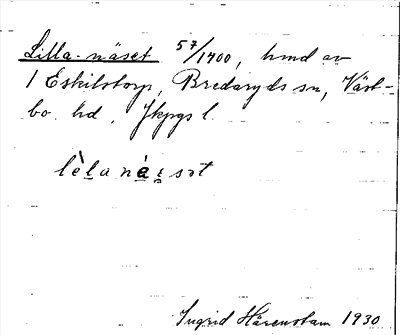 Lilla-näset 57/1400, hmd av
1 Eskilstorp, Bredaryds sn, Väst-
bo hd. Jkpgs l.
lèlanàsət
Ingrid Härenstam 1930